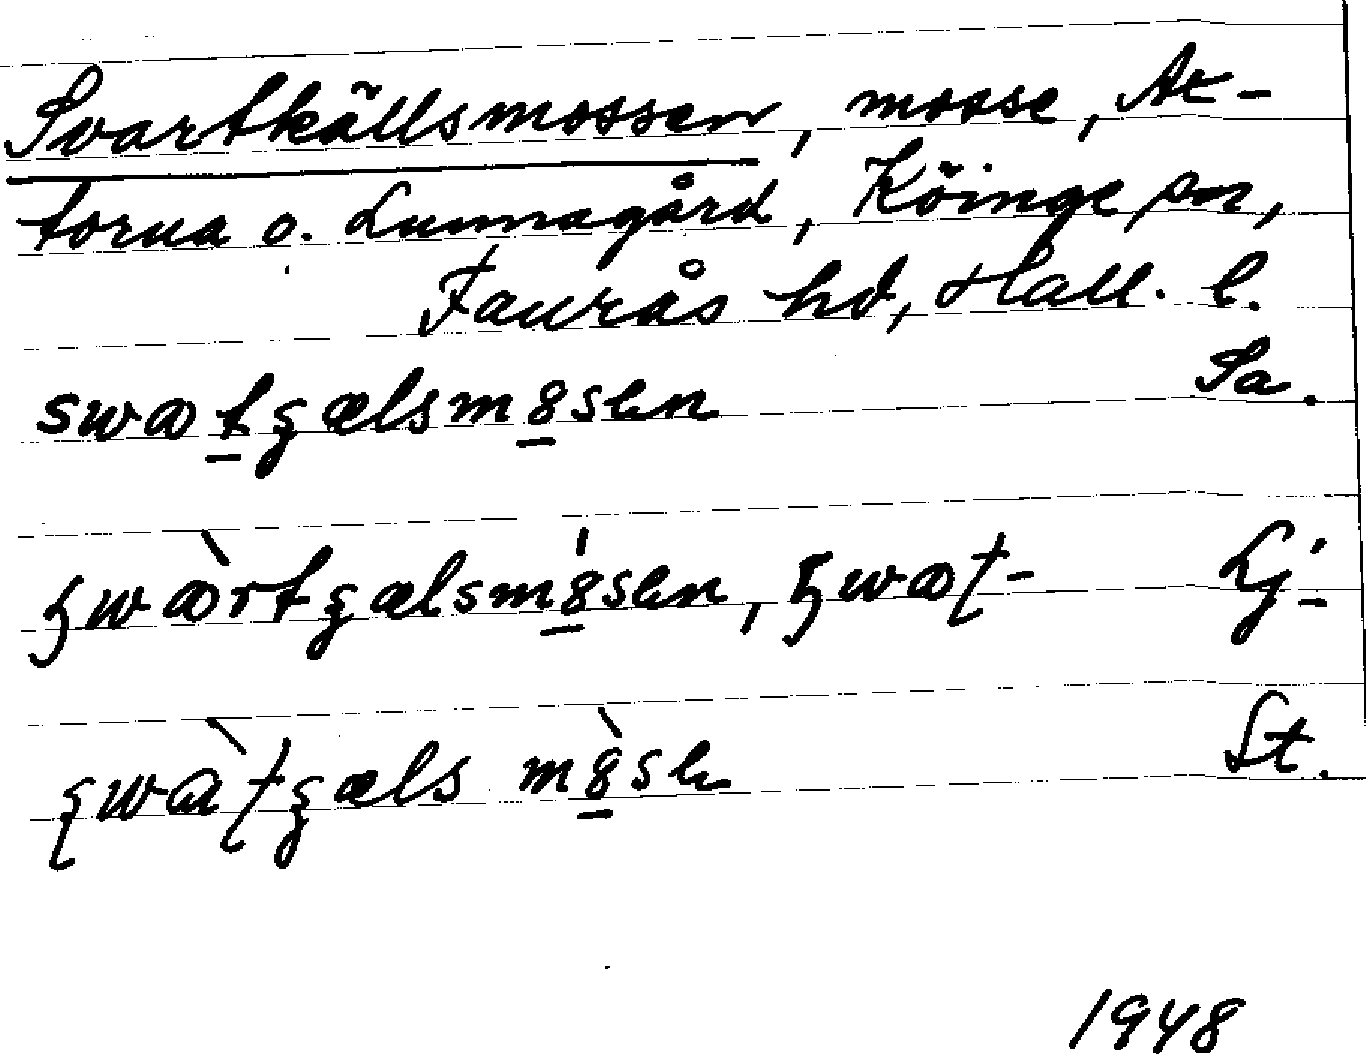 Svartkällsmossen, mosse, At-
torna o. Lunnagård, Köinge sn,
Faurås hd, Hall. l.
swatgælsm8sen Sa.
wærtgælsm8sen, wæt- Lj.
wætgæls m8sen St.
1948